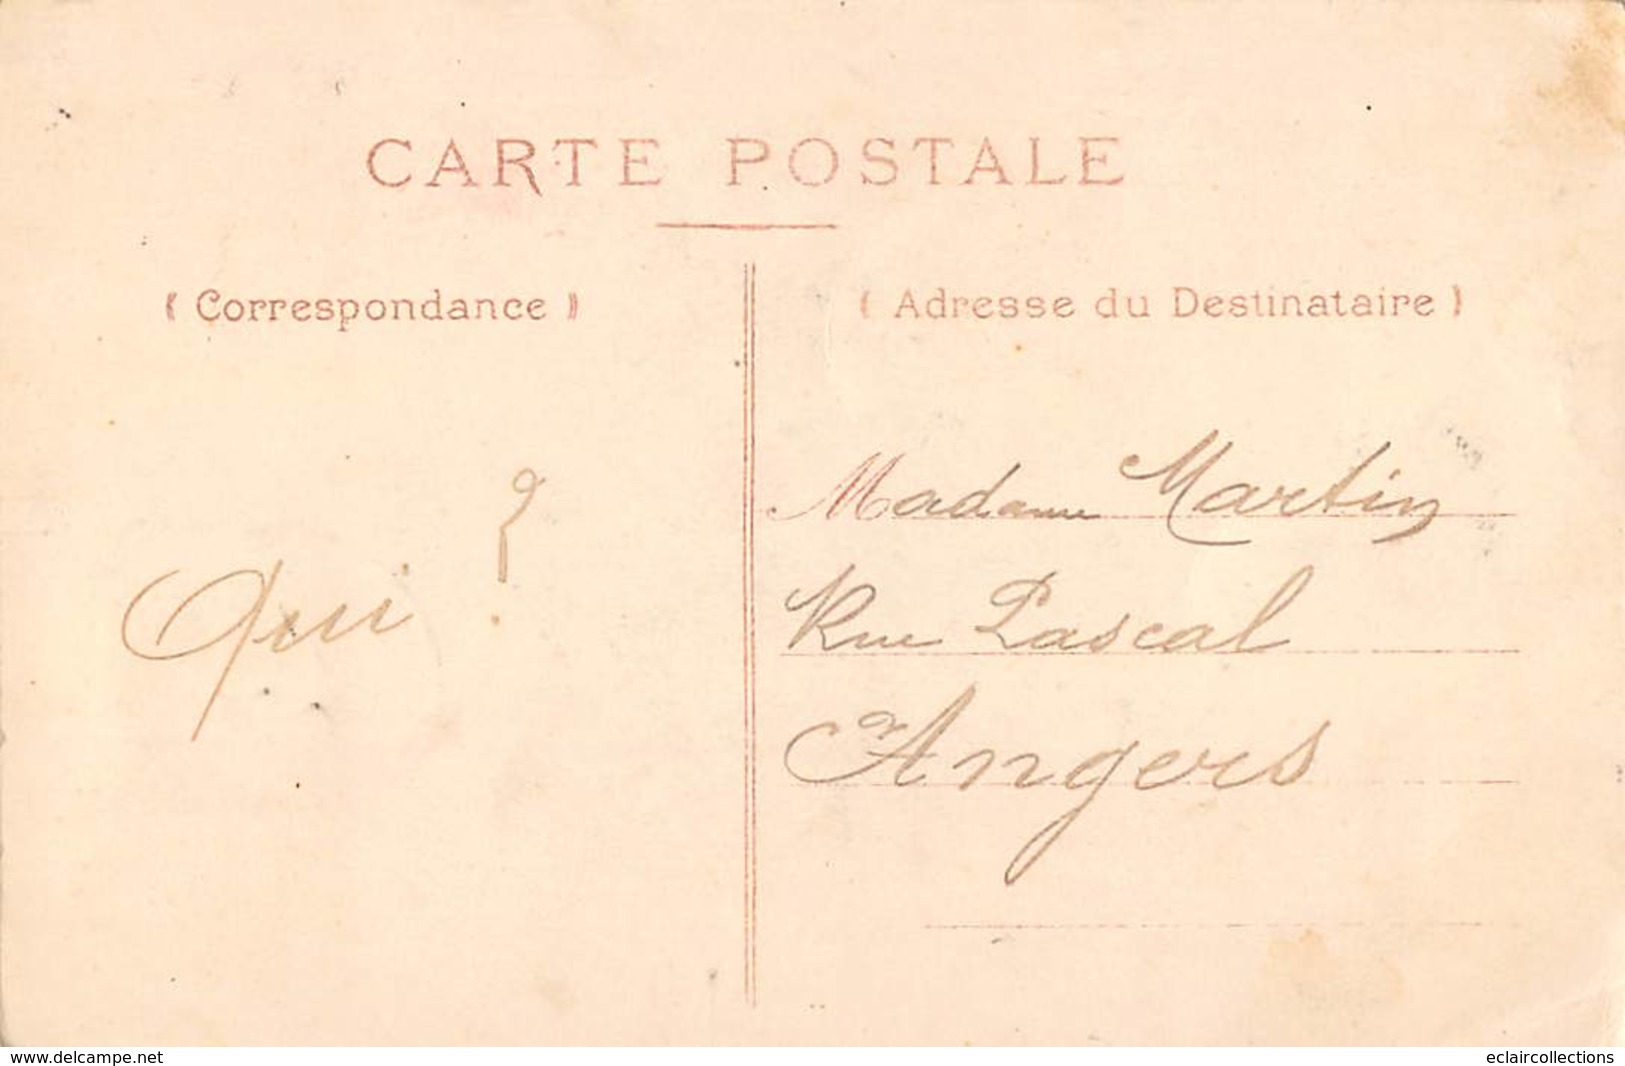 CARTE POSTALE
( Correspondance )
( Adresse du Destinataire )
Qui ?
Madame Martin
Rue Pascal
Angers
www.delcampe.net
eclaircollections